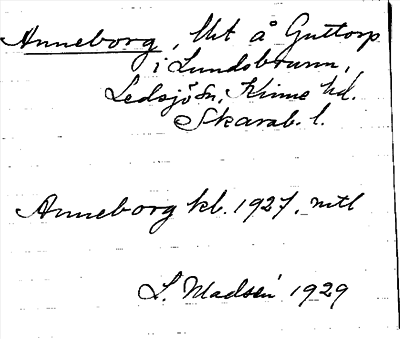 Anneborg, lht å Guttorp
i Lundsbrunn,
Ledsjö sn, Kinne hd.
Skarab. l.
Anneborg kl. 1927. mtl
L. Madsén 1929